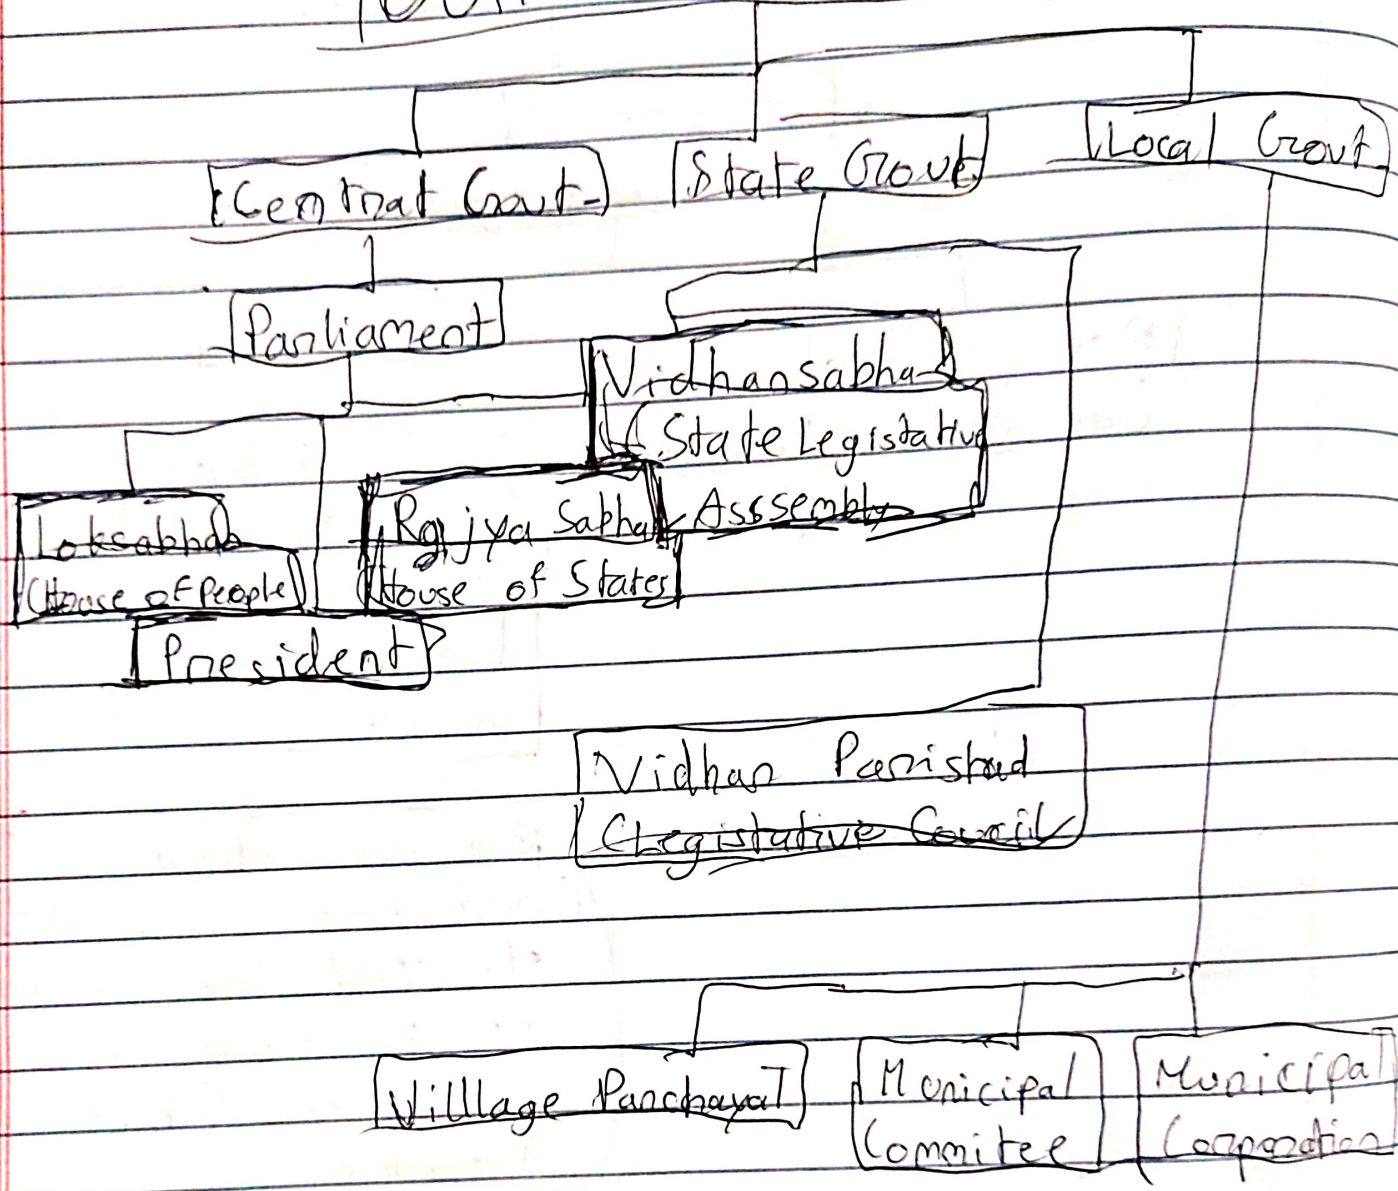 Central Govt.
State Govt.
Local Govt.
Parliament
Vidhansabha
(State Legislative
Asssembly
Loksabha
(House of People)
Rajya Sabha
House of States
President
Vidhan Parishad
(Legislative Council
Villlage Panchayat
Municipal
Commitee
Municipal
Corporation